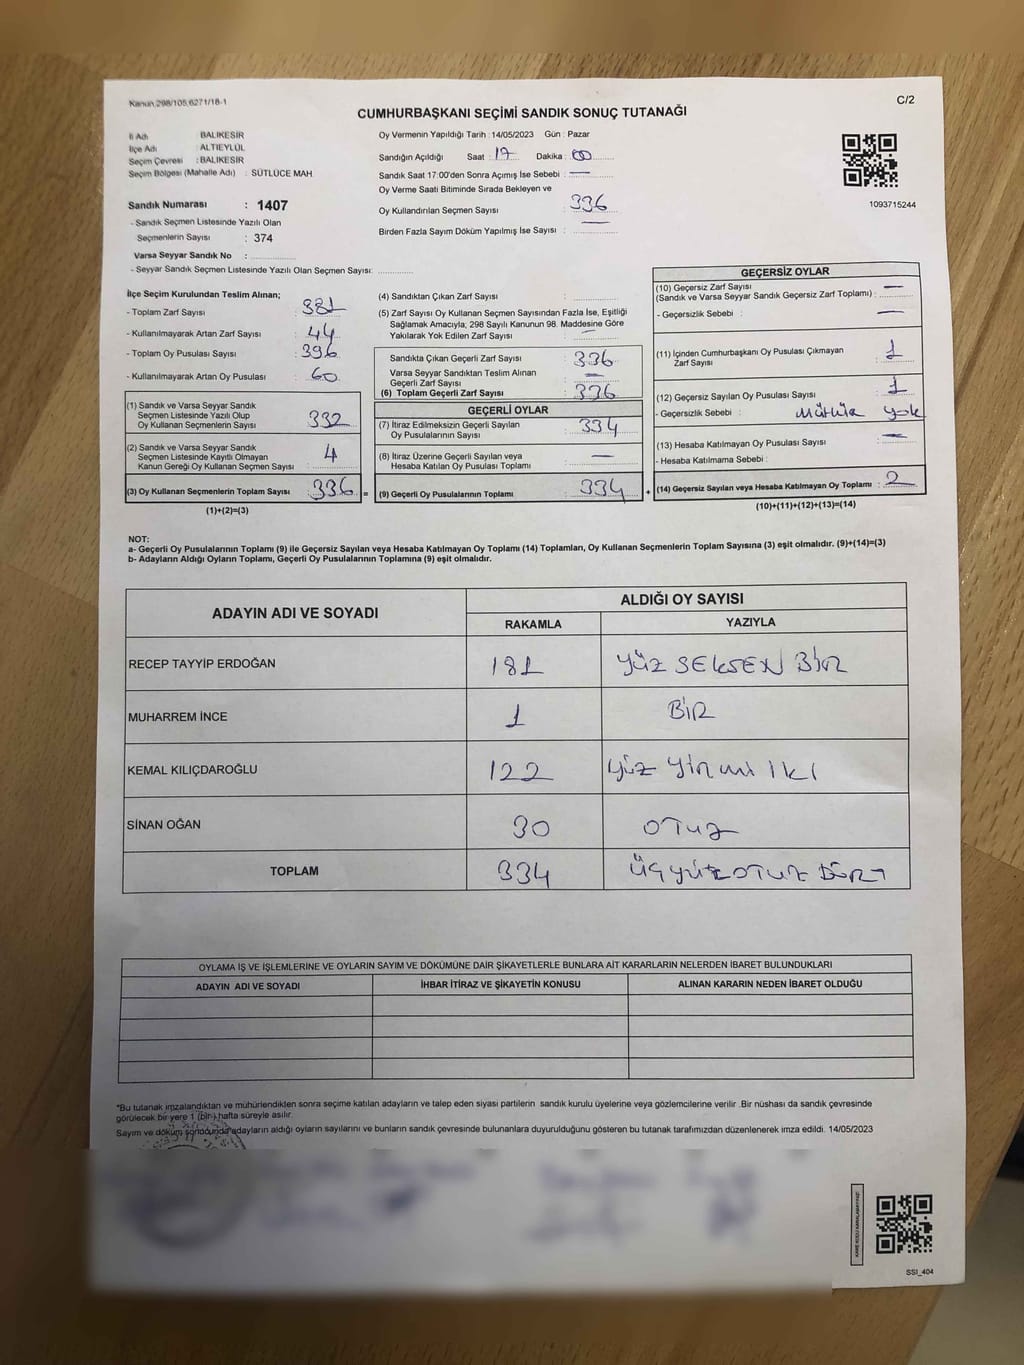 Kanun 298/105,6271/18-1
C/2
CUMHURBAŞKANI SEÇİMİ SANDIK SONUÇ TUTANAĞI
İl Adı : BALIKESİR
İlçe Adı : ALTIEYLÜL
Seçim Çevresi : BALIKESİR
Seçim Bölgesi (Mahalle Adı) : SÜTLÜCE MAH
Sandık Numarası : 1407
- Sandık Seçmen Listesinde Yazılı Olan
Seçmenlerin Sayısı : 374
Varsa Seyyar Sandık No :
- Seyyar Sandık Seçmen Listesinde Yazılı Olan Seçmen Sayısı:
Oy Vermenin Yapıldığı Tarih : 14/05/2023 Gün : Pazar
Sandığın Açıldığı Saat : 17 Dakika : 00
Sandık Saat 17:00'den Sonra Açımış İse Sebebi : —
Oy Verme Saati Bitiminde Sırada Bekleyen ve
Oy Kullandırılan Seçmen Sayısı : 336
Birden Fazla Sayım Döküm Yapılmış İse Sayısı : —
1093715244
İlçe Seçim Kurulundan Teslim Alınan;
- Toplam Zarf Sayısı : 381
- Kullanılmayarak Artan Zarf Sayısı : 44
- Toplam Oy Pusulası Sayısı : 396
- Kullanılmayarak Artan Oy Pusulası : 60
(1) Sandık ve Varsa Seyyar Sandık
Seçmen Listesinde Yazılı Olup
Oy Kullanan Seçmenlerin Sayısı : 332
(2) Sandık ve Varsa Seyyar Sandık
Seçmen Listesinde Kayıtlı Olmayan
Kanun Gereği Oy Kullanan Seçmen Sayısı : 4
(3) Oy Kullanan Seçmenlerin Toplam Sayısı : 336 =
(1)+(2)=(3)
(4) Sandıktan Çıkan Zarf Sayısı :
(5) Zarf Sayısı Oy Kullanan Seçmen Sayısından Fazla İse, Eşitliği
Sağlamak Amacıyla, 298 Sayılı Kanunun 98. Maddesine Göre
Yakılarak Yok Edilen Zarf Sayısı : —
Sandıkta Çıkan Geçerli Zarf Sayısı : 336
Varsa Seyyar Sandıktan Teslim Alınan
Geçerli Zarf Sayısı : —
(6) Toplam Geçerli Zarf Sayısı : 336
GEÇERLİ OYLAR
(7) İtiraz Edilmeksizin Geçerli Sayılan
Oy Pusulalarının Sayısı : 334
(8) İtiraz Üzerine Geçerli Sayılan veya
Hesaba Katılan Oy Pusulası Toplamı : —
(9) Geçerli Oy Pusulalarının Toplamı : 334 +
GEÇERSİZ OYLAR
(10) Geçersiz Zarf Sayısı
(Sandık ve Varsa Seyyar Sandık Geçersiz Zarf Toplamı) : —
- Geçersizlik Sebebi : —
(11) İçinden Cumhurbaşkanı Oy Pusulası Çıkmayan
Zarf Sayısı : 1
(12) Geçersiz Sayılan Oy Pusulası Sayısı : 1
- Geçersizlik Sebebi : Mühür yok
(13) Hesaba Katılmayan Oy Pusulası Sayısı : —
- Hesaba Katılmama Sebebi :
(14) Geçersiz Sayılan veya Hesaba Katılmayan Oy Toplamı : 2
(10)+(11)+(12)+(13)=(14)
NOT:
a- Geçerli Oy Pusulalarının Toplamı (9) ile Geçersiz Sayılan veya Hesaba Katılmayan Oy Toplamı (14) Toplamları, Oy Kullanan Seçmenlerin Toplam Sayısına (3) eşit olmalıdır. (9)+(14)=(3)
b- Adayların Aldığı Oyların Toplamı, Geçerli Oy Pusulalarının Toplamına (9) eşit olmalıdır.
ADAYIN ADI VE SOYADI
ALDIĞI OY SAYISI
RAKAMLA YAZIYLA
RECEP TAYYİP ERDOĞAN 181 YÜZ SEKSEN BİR
MUHARREM İNCE 1 BİR
KEMAL KILIÇDAROĞLU 122 yüz yirmi iki
SİNAN OĞAN 30 OTUZ
TOPLAM 334 ÜÇYÜZOTUZ DÖRT
OYLAMA İŞ VE İŞLEMLERİNE VE OYLARIN SAYIM VE DÖKÜMÜNE DAİR ŞİKAYETLERLE BUNLARA AİT KARARLARIN NELERDEN İBARET BULUNDUKLARI
ADAYIN ADI VE SOYADI İHBAR İTİRAZ VE ŞİKAYETİN KONUSU ALINAN KARARIN NEDEN İBARET OLDUĞU
*Bu tutanak imzalandıktan ve mühürlendikten sonra seçime katılan adayların ve talep eden siyasi partilerin sandık kurulu üyelerine veya gözlemcilerine verilir .Bir nüshası da sandık çevresinde
görülecek bir yere 1 (bir) hafta süreyle asılır.
Sayım ve döküm sonucunda adayların aldığı oyların sayılarını ve bunların sandık çevresinde bulunanlara duyurulduğunu gösteren bu tutanak tarafımızdan düzenlenerek imza edildi. 14/05/2023
SSI_404